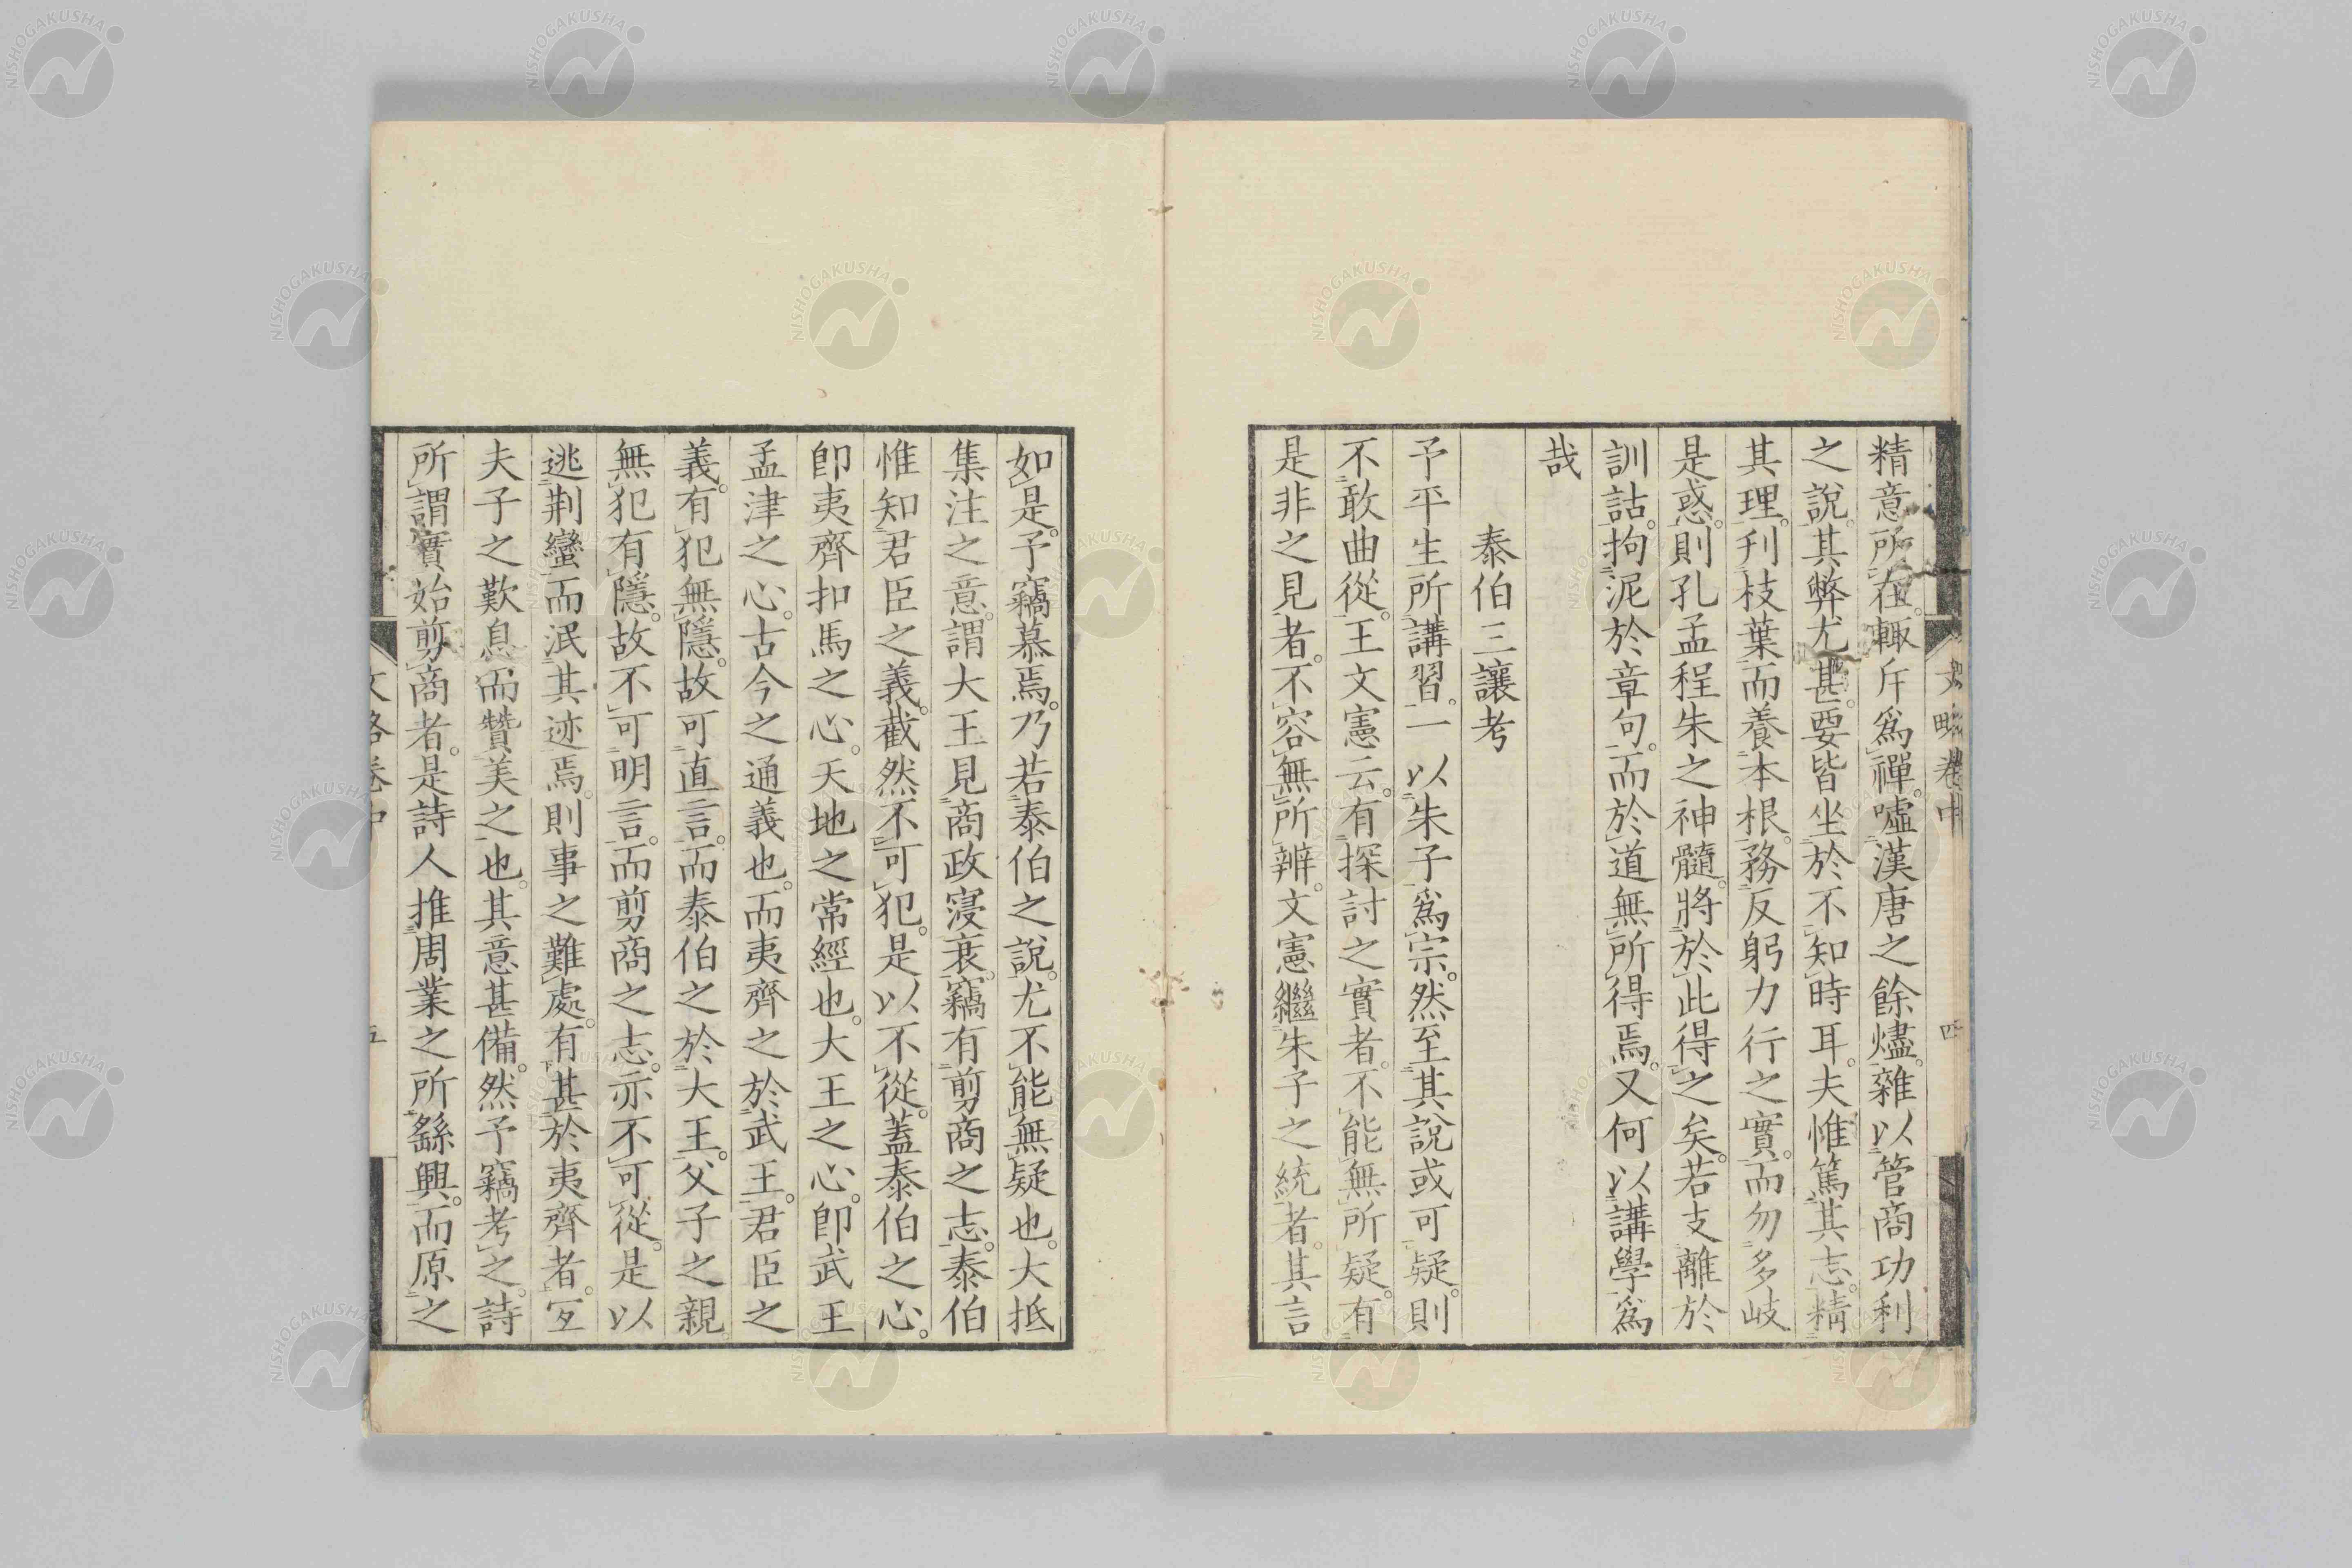 精意所在。輙斥為禪。噓漢唐之餘燼。雜以管商功利
之說。其弊尤甚。要皆坐於不知時耳。夫惟篤其志。精
其理。刋枝葉而養本根。務反躬力行之實。而勿多岐
是惑。則孔孟程朱之神髓。將於此得之矣。若支離於
訓詁。拘泥於章句。而於道無所得焉。又何以講學為
哉
泰伯三讓考
予平生所講習。一以朱子為宗。然至其說或可疑。則
不敢曲從。王文憲云。有探討之實者。不能無所疑。有
是非之見者。不容無所辨。文憲繼朱子之統者。其言
如是。予竊慕焉。乃若泰伯之說。尤不能無疑也。大抵
集注之意。謂大王見商政寖衰。竊有剪商之志。泰伯
惟知君臣之義。截然不可犯。是以不從。蓋泰伯之心。
卽夷齊扣馬之心。天地之常經也。大王之心。卽武王
孟津之心。古今之通義也。而夷齊之於武王。君臣之
義。有犯無隱。故可直言。而泰伯之於大王。父子之親。
無犯有隱。故不可明言。而剪商之志。亦不可從。是以
逃荆蠻而泯其迹焉。則事之難處。有甚於夷齊者。宐
夫子之歎息而贊美之也。其意甚備。然予竊考之。詩
所謂實始剪商者。是詩人推周業之所繇興。而原之
文略卷中
四
文略卷中
五
NISHOGAKUSHA